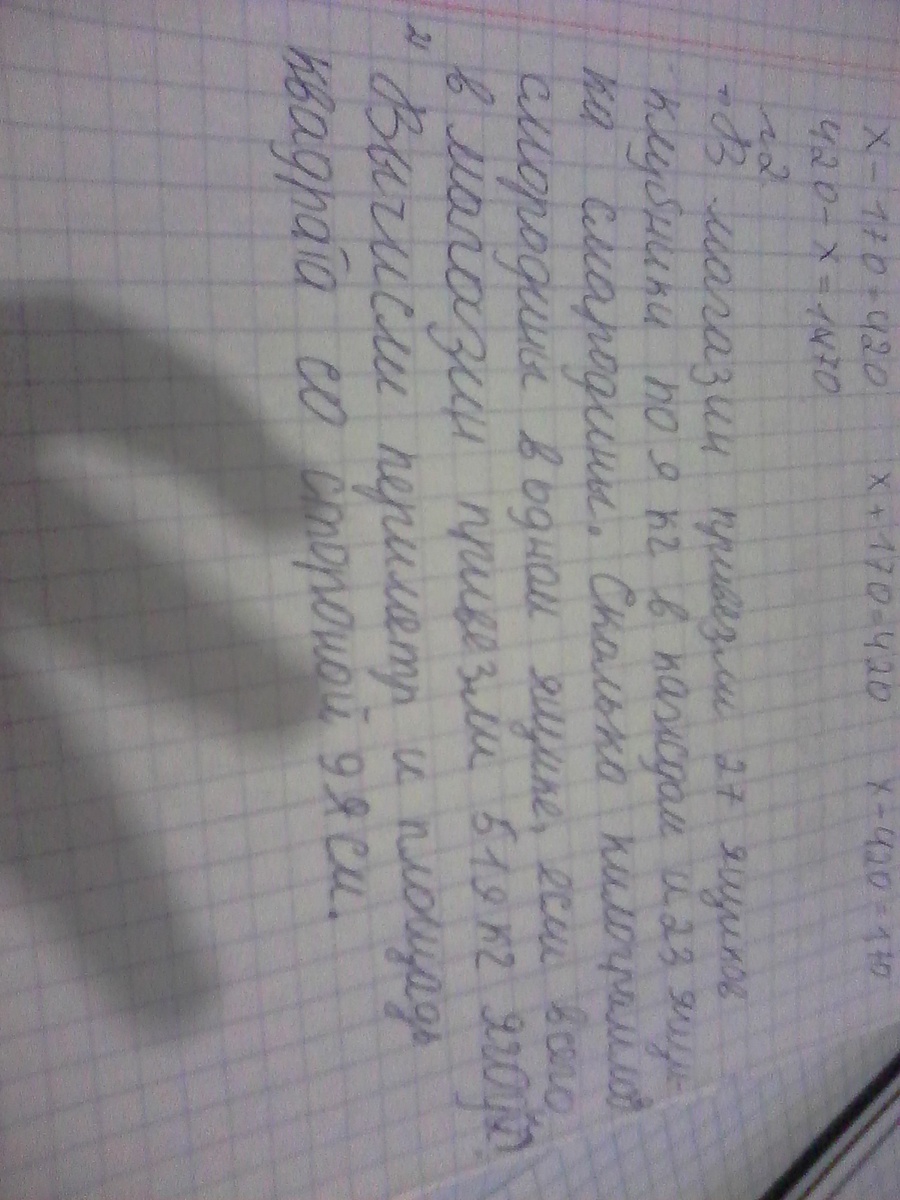 x-170=420 x+170=420 x-420=170
420-x=170
н2.
1) В магазин привезли 27 ящиков
клубники по 9 кг в каждом и 23 ящи-
ка смародины. Сколько килограмов
смородины в одном ящике, если всего
в магазин привезли 519 кг ягоды?
2) Вычисли периметр и площадь
квадрата со стороной 98 см.